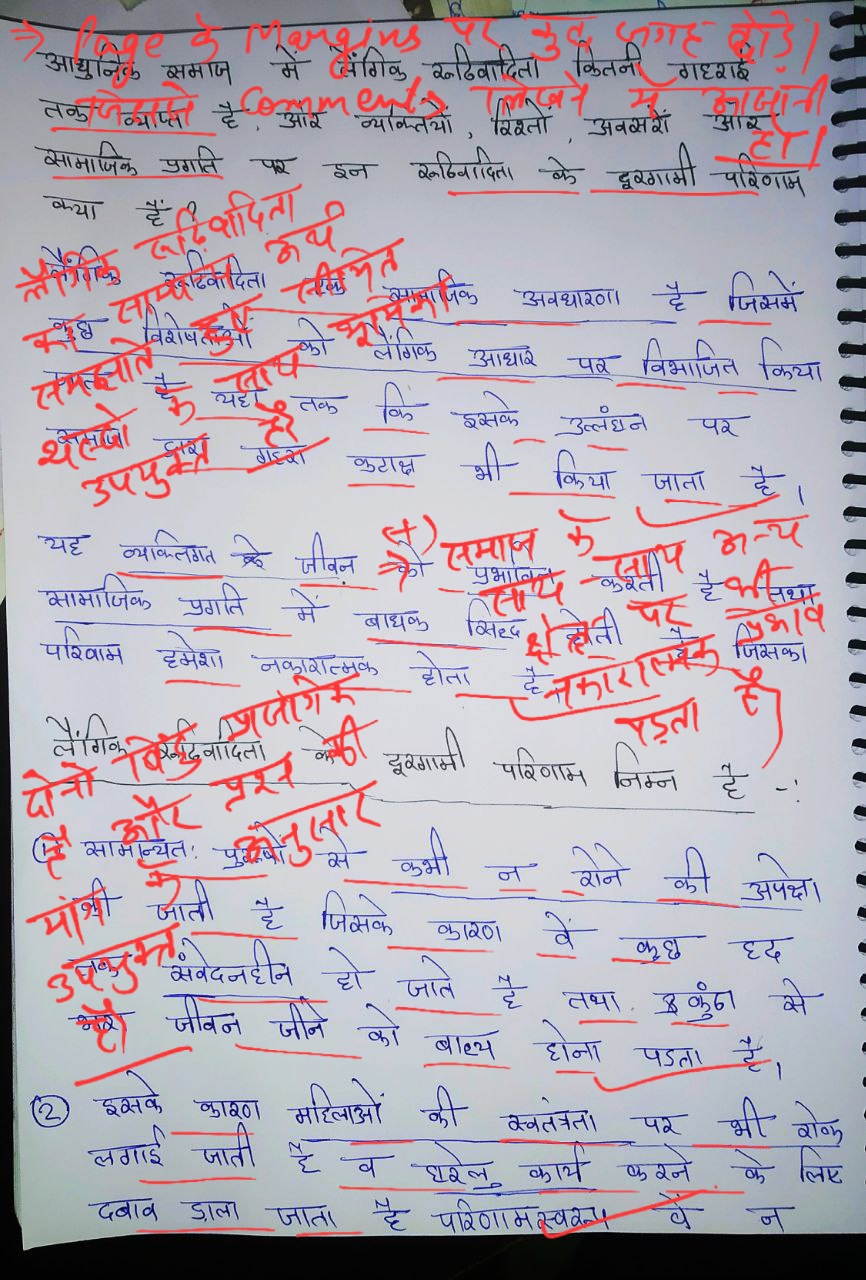 ⇒ Page के Margins पर कुछ जगह छोड़े।
आधुनिक समाज में लैंगिक रूढिवादिता कितनी गहराई
जिससे Comments लिखने में आसानी
हो।
तक व्याप्त है, और व्यक्तियों, रिश्तो, अवसरों और
सामाजिक प्रगति पर इन रूढिवादिता के दूरगामी परिणाम
क्या हैं?
लैंगिक रूढ़िवादिता
का सामान्य अर्थ
समझाते हुए सीमित
शब्दो के साथ भूमिका
उपयुक्त है
लैंगिक रूढिवादिता एक सामाजिक अवधारणा है जिसमें
कुछ विशेषताओं को लैंगिक आधार पर विभाजित किया
जाता है यहां तक कि इसके उल्लंघन पर
समाज द्वारा गहरा कटाक्ष भी किया जाता है।
यह व्यक्तिगत जीवन को प्रभावित करती है तथा
सामाजिक प्रगति में बाधक सिद्ध होती है जिसका
परिवाम हमेशा नकारात्मक होता है
समाज के साथ अन्य
क्षेत्रो पर भी
नकारात्मक प्रभाव
पड़ता है
लैंगिक रूढिवादिता के दूरगामी परिणाम निम्न है -:
दोनो बिंदु प्रासंगिक
है और प्रश्न की
मांग के अनुसार
उपयुक्त है।
① सामान्यतः पुरुषों से कभी न रोने की अपेक्षा
की जाती है जिसके कारण वें कुछ हद
तक संवेदनहीन हो जाते है तथा कुंठा से
भरा जीवन जीने को बाध्य होना पडता है।
② इसके कारण महिलाओं की स्वतंत्रता पर भी रोक
लगाई जाती है व घरेलु कार्य करने के लिए
दबाव डाला जाता है परिणामस्वरूप वें न